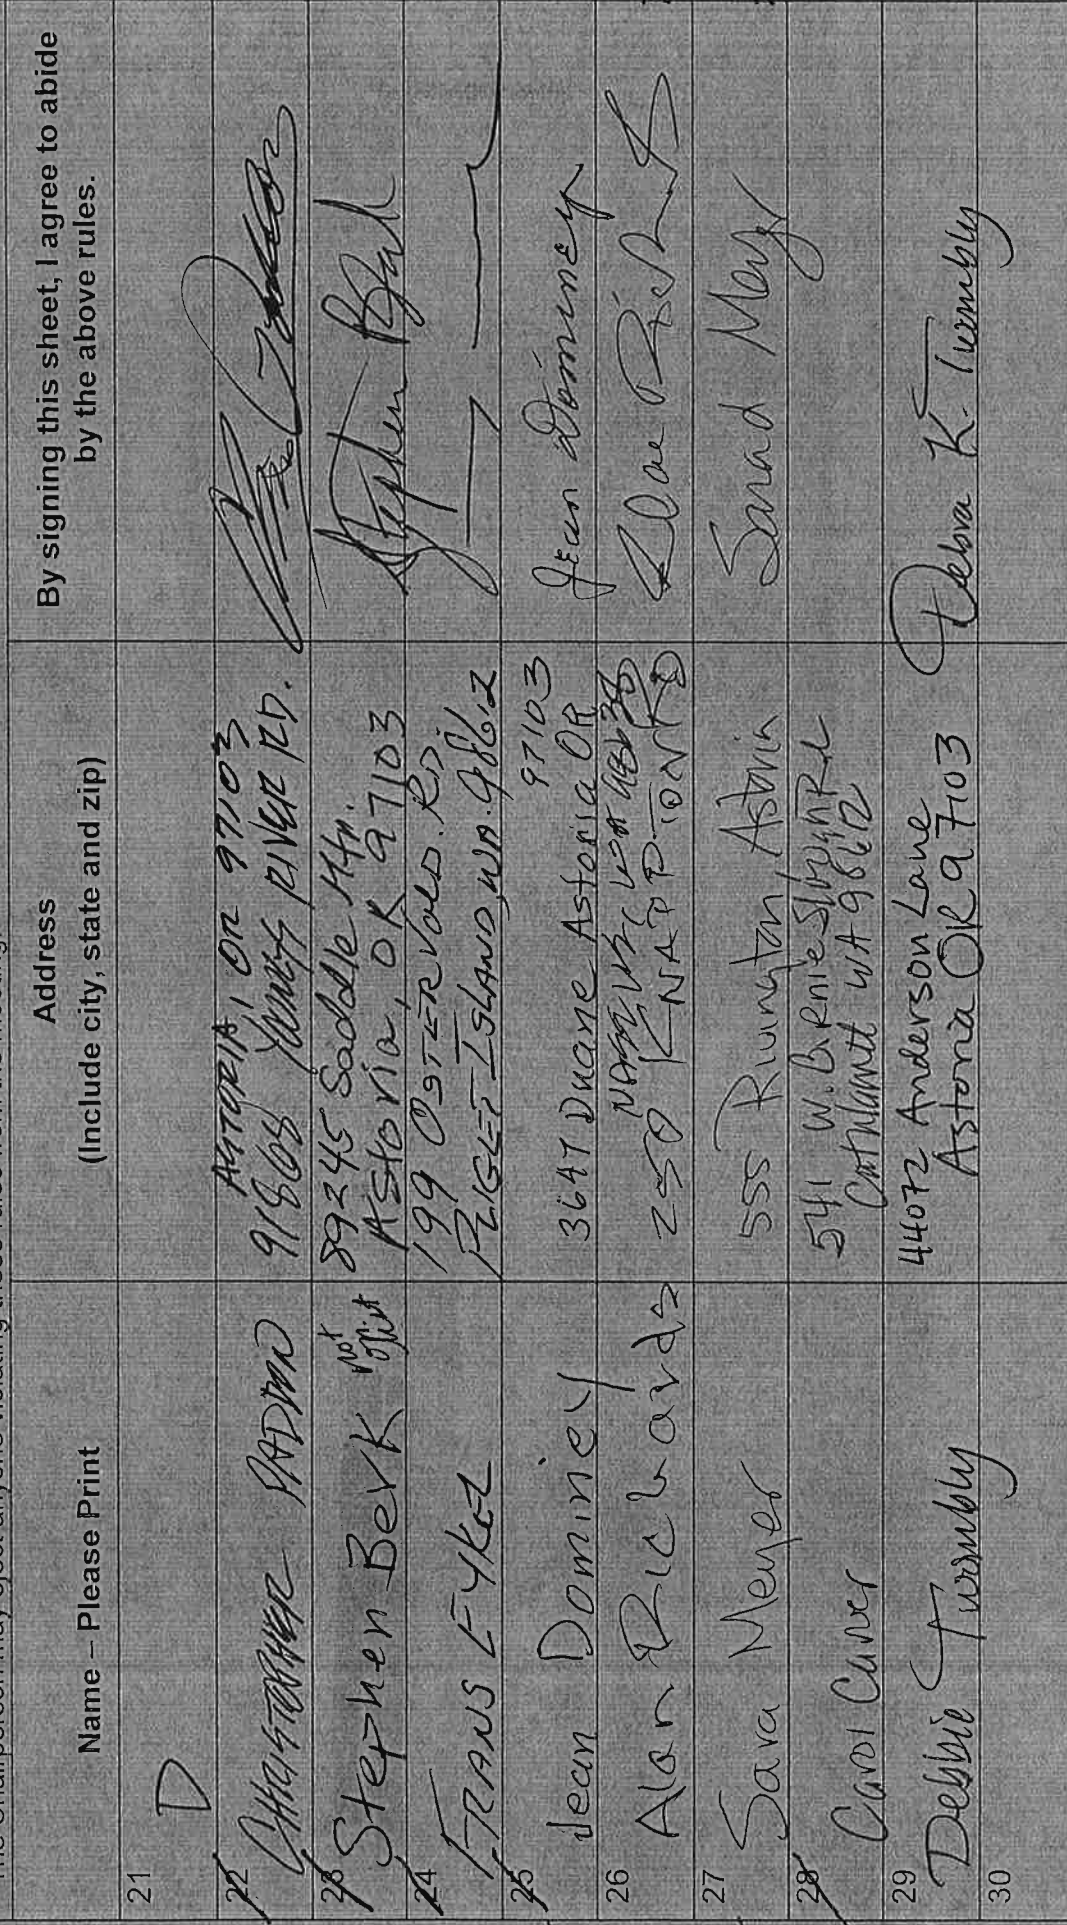 Name – Please Print
Address
(Include city, state and zip)
By signing this sheet, I agree to abide
by the above rules.
21
D
22
CHRISTOPHER PADDON
ASTORIA, OR 97103
91868 YOUNGS RIVER RD.
23
Stephen Berk
89245 Saddle Mtn.
Astoria, OR 97103
24
FRANS EYKEL
199 OSTERVOLD. RD.
PUGET ISLAND, WA. 98612
25
Jean Dominey
97103
3647 Duane Astoria OR
Jean Dominey
26
Alan Richards
250
27
Sara Meyer
555 Rivington, Astoria
28
Carol Carver
541 W. Birnie Slough Rd
Cathlamet WA 98612
29
Debbie Twombly
44072 Anderson Lane
Astoria OR 97103
Debra K. Twombly
30